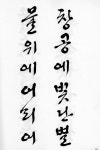 창공에빛난별
물위에어리어